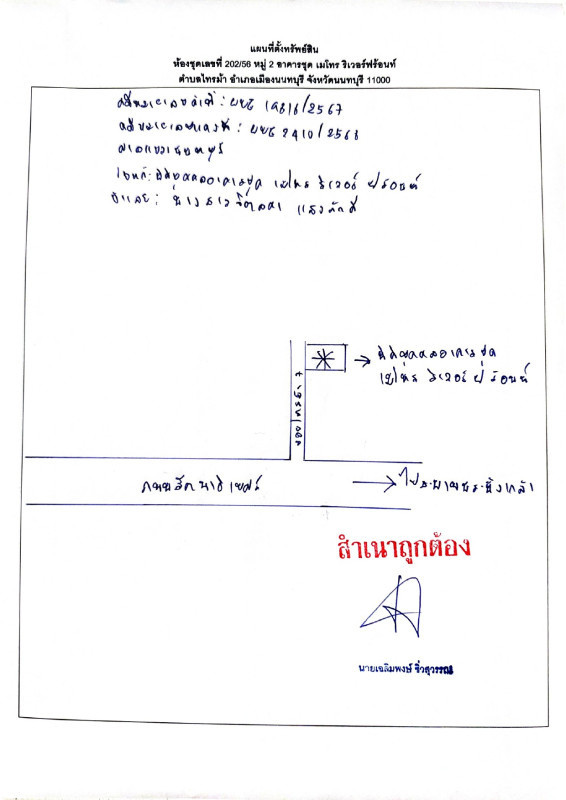 แผนที่ตั้งทรัพย์สิน
ห้องชุดเลขที่ 202/56 หมู่ 2 อาคารชุด เมโทร ริเวอร์ฟร้อนท์
ตำบลไทรม้า อำเภอเมืองนนทบุรี จังหวัดนนทบุรี 11000
คดีหมายเลขดำที่ : ผบE 19816/2567
คดีหมายเลขแดงที่ : ผบE 2410/2568
ศาลแขวงนนทบุรี
โจทก์ : นิติบุคคลอาคารชุด เมโทร ริเวอร์ ฟร้อนท์
จำเลย : นางสาว จิตลดา แสงภักดี
นิติบุคคลอาคารชุด
เมโทร ริเวอร์ ฟร้อนท์
ซอยไทรม้า
ถนนรัตนาธิเบศร์
ไปสะพานพระนั่งเกล้า
สำเนาถูกต้อง
นายเฉลิมพงษ์